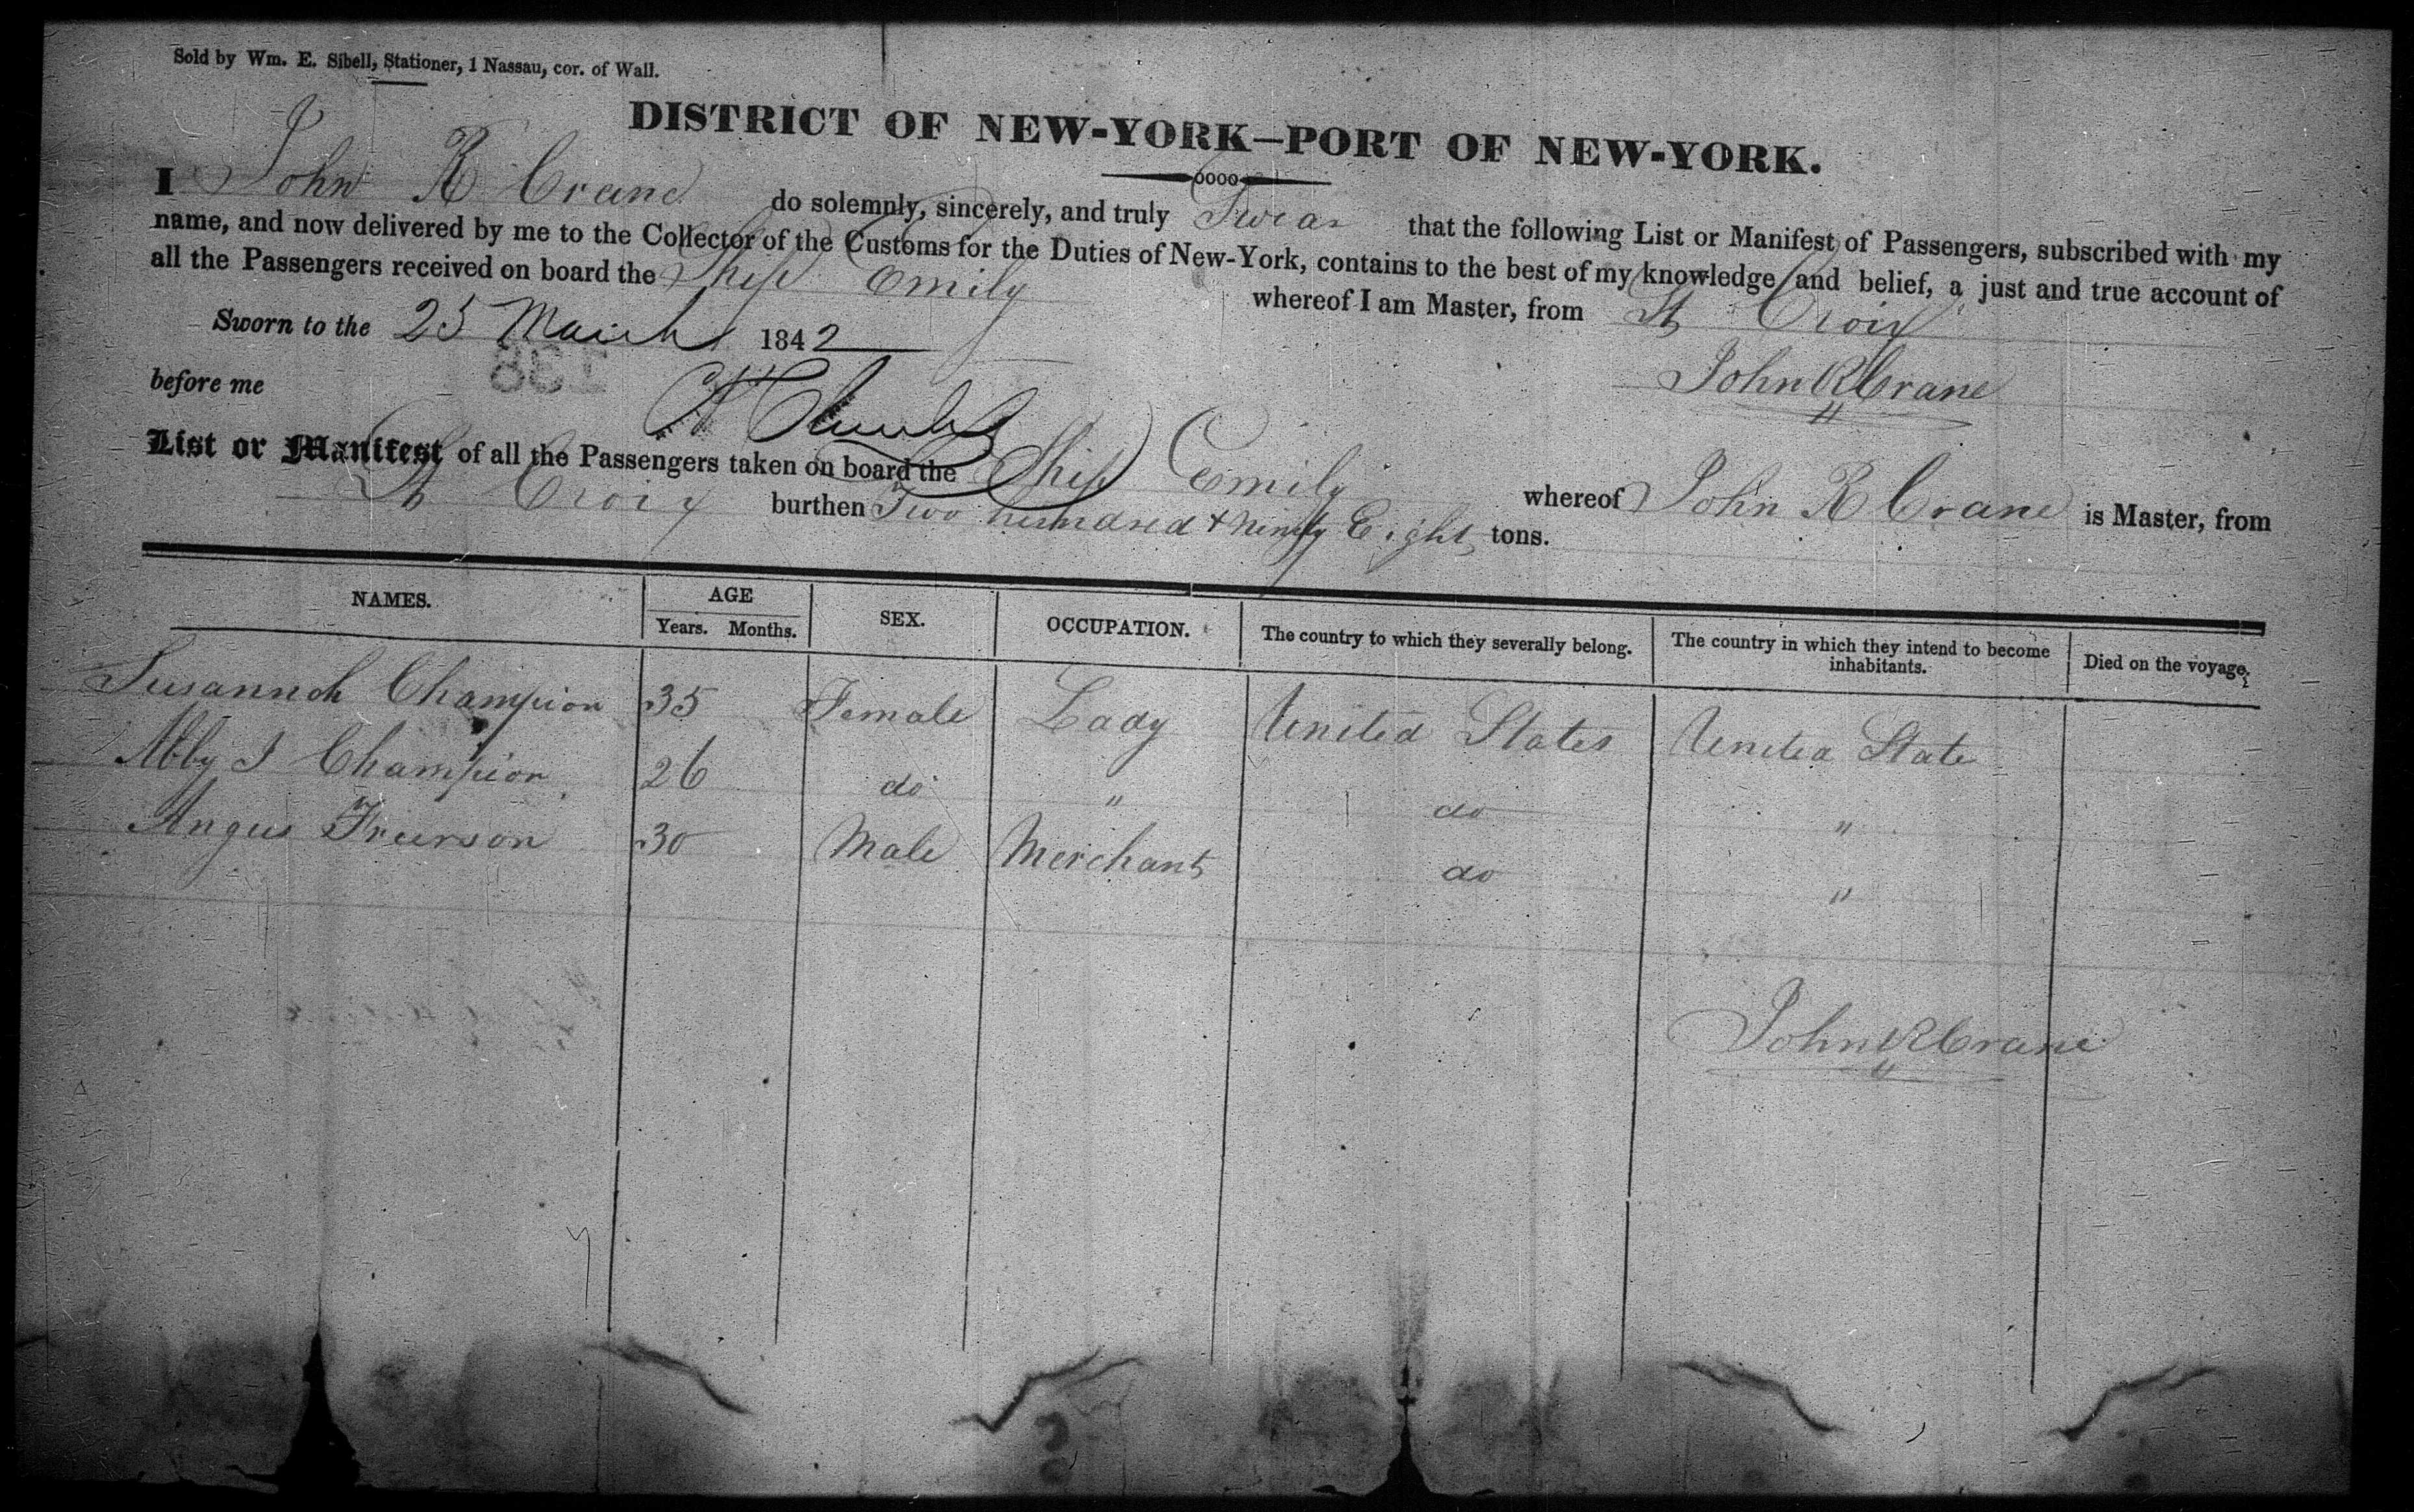 Sold by Wm. E. Sibell, Stationer, 1 Nassau, cor. of Wall.
DISTRICT OF NEW-YORK—PORT OF NEW-YORK.
I John R Crane do solemnly, sincerely, and truly Swear that the following List or Manifest of Passengers, subscribed with my
name, and now delivered by me to the Collector of the Customs for the Duties of New-York, contains to the best of my knowledge and belief, a just and true account of
all the Passengers received on board the Ship Emily whereof I am Master, from St Croix
Sworn to the 25 March 1842
John R Crane
before me
List or Manifest of all the Passengers taken on board the Ship Emily whereof John R Crane is Master, from
St Croix burthen Two hundred + ninety Eight tons.
NAMES. AGE Years. Months. SEX. OCCUPATION. The country to which they severally belong. The country in which they intend to become inhabitants. Died on the voyage.
Susannah Champion 35 Female Lady United States United State
Abby I Champion 26 do " do "
Angus 30 Male Merchant do "
John R Crane